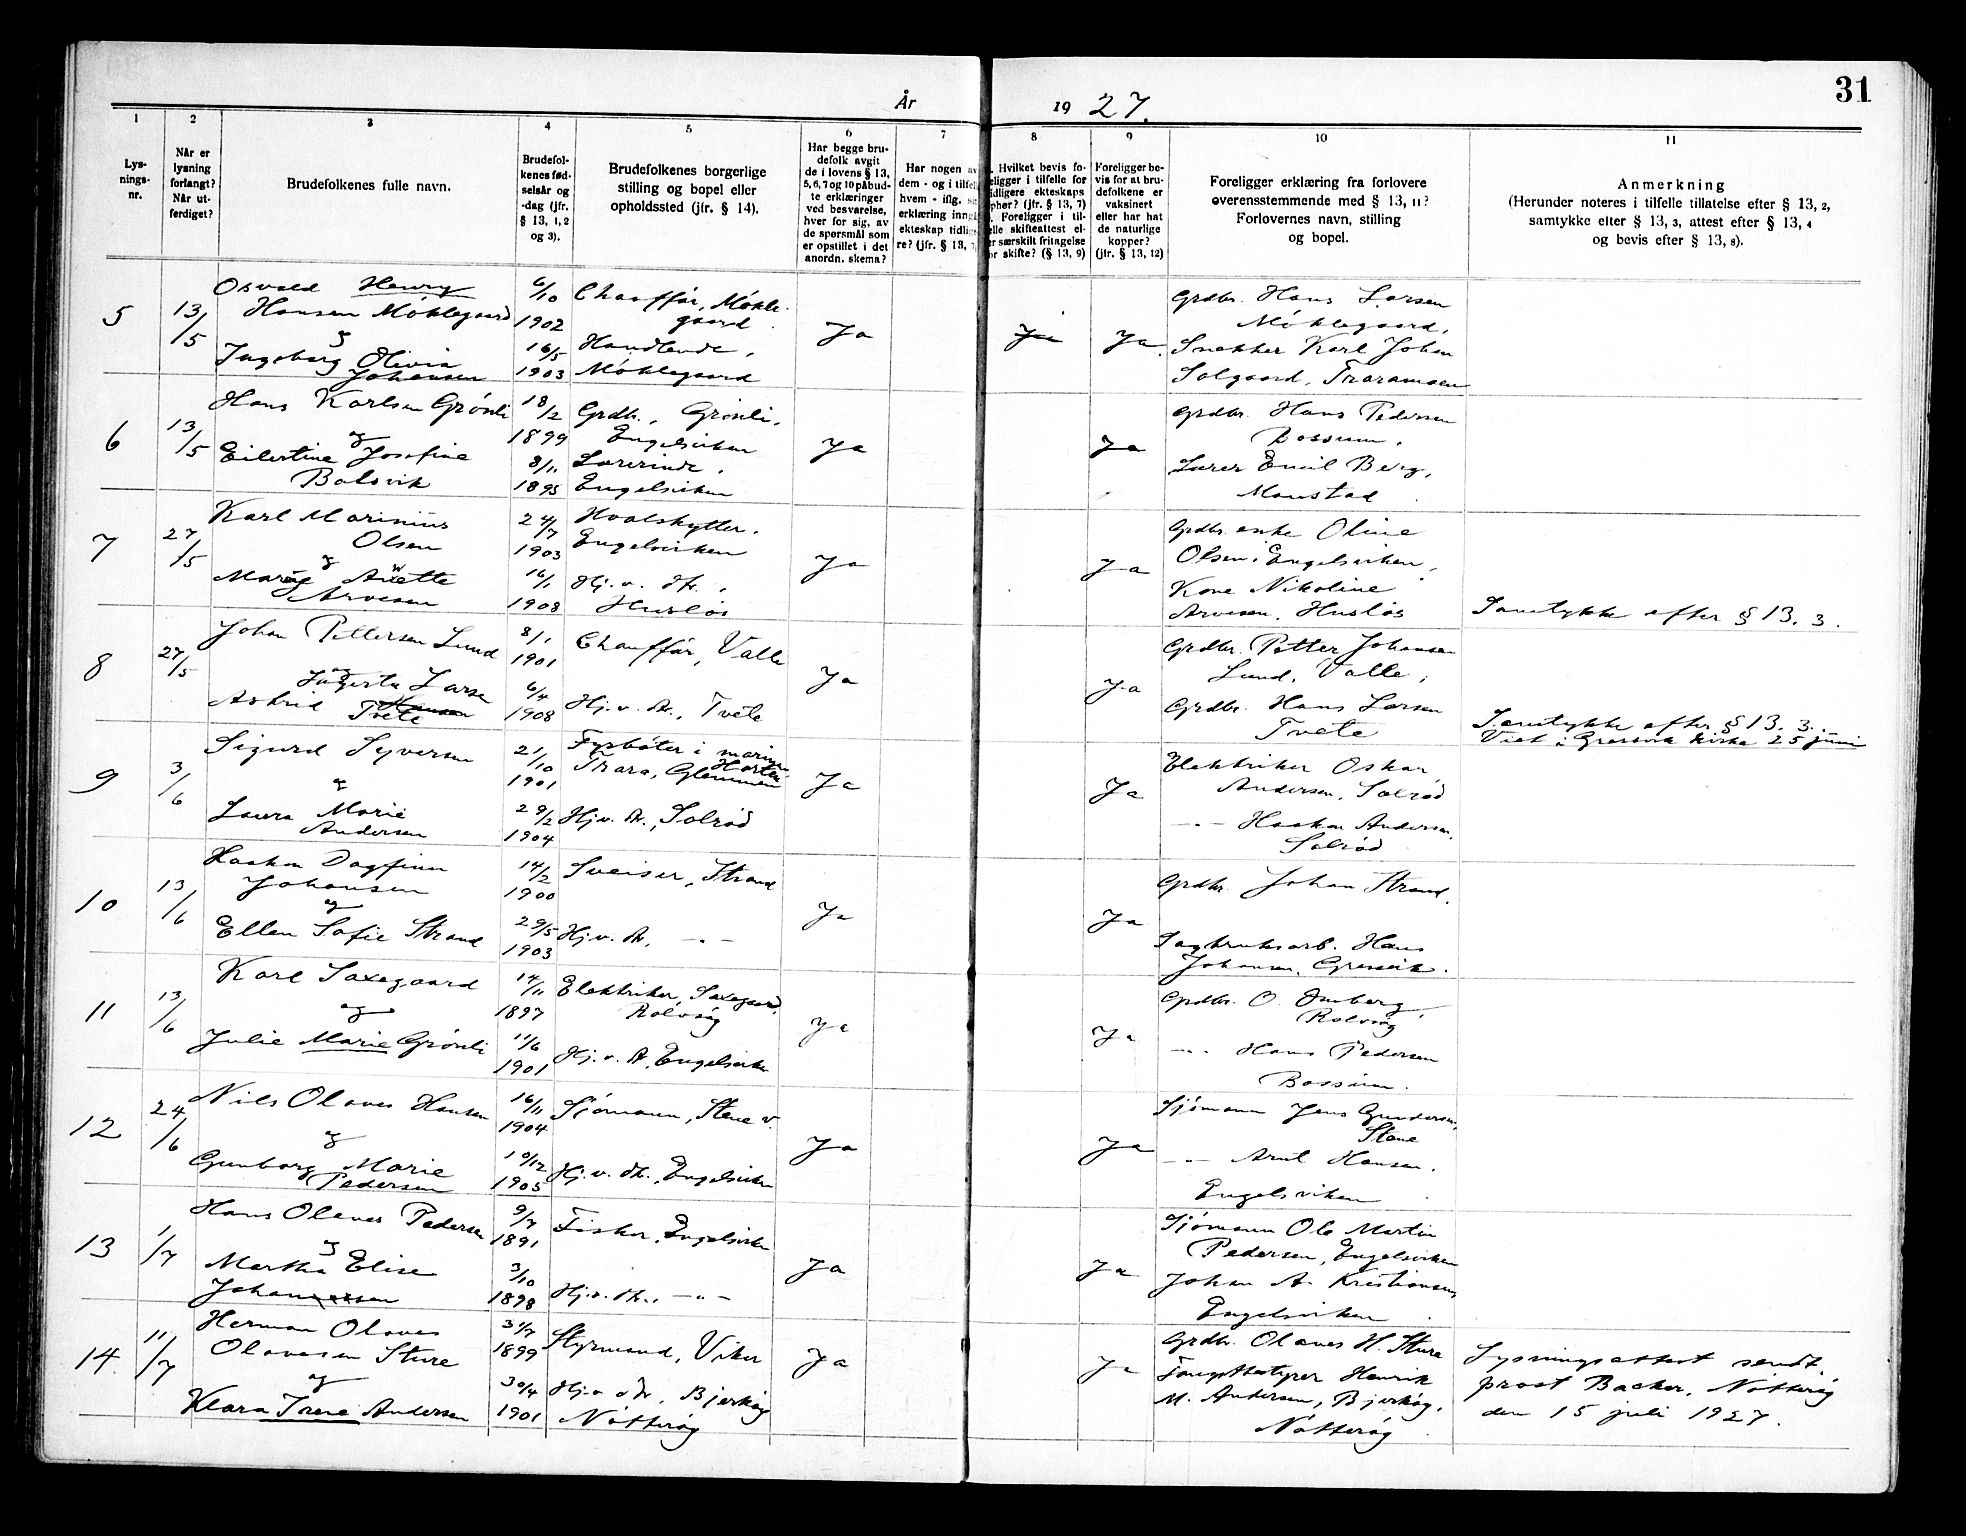 31
År 1927.
1
2
3
4
5
6
7
8
9
10
11
Lys-
nings-
nr.
Når er
lysning
forlangt?
Når ut-
ferdiget?
Brudefolkenes fulle navn.
Brudefol-
kenes fød-
selsår og
-dag (jfr.
§ 13, 1, 2
og 3).
Brudefolkenes borgerlige
stilling og bopel eller
opholdssted (jfr. § 14).
Har begge bru-
defolk avgit
de i lovens § 13,
5, 6, 7 og 10 påbud-
te erklæringer
ved besvarelse,
hver for sig, av
de spørsmål som
er opstillet i det
anordn. skema?
Har nogen av
dem - og i tilfelle
hvem - iflg. 
erklæring inngått
ekteskap tidlige-
re? (jfr. § 13, 7)
Hvilket bevis fo-
religger i tilfelle for
tidligere ekteskaps
ophør? (jfr. § 13, 7)
Foreligger i til-
felle skifteattest el-
ler særskilt fritagelse
for skifte? (§ 13, 9)
Foreligger be-
vis for at bru-
defolkene er
vaksinert
eller har hat
de naturlige
kopper?
(jfr. § 13, 12)
Foreligger erklæring fra forlovere
overensstemmende med § 13, 11?
Forlovernes navn, stilling
og bopel.
Anmerkning
(Herunder noteres i tilfelle tillatelse efter § 13, 2,
samtykke efter § 13, 3, attest efter § 13, 4
og bevis efter § 13, 8).
5
13/5
Osvald Henry
Hansen Møklegaard
&
Ingeborg Olivia
Johansen
6/10
1902
16/5
1903
Chauffør, Møkle-
gaard
Handlende,
Møklegaard
Ja
Ja
Ja
Grdbr. Hans Larsen
Møklegaard,
Snekker Karl Johan
Solgaard, Traramoen
6
13/5
Hans Karlsen Grønli
og
Eilertine Josefine
Bolsvik
18/2
1899
8/11
1895
Grdbr., Grønli,
Engelsviken
Lærerinde,
Engelsviken
Ja
Ja
Grdbr. Hans Pedersen
Bossum,
Lærer Emil Berg,
Manstad
7
27/5
Karl Marinius
Olsen
og
Anette
Arvesen
24/7
1903
16/1
1908
Hvalskytter,
Engelsviken
Hj. v. d.,
Husløs
Ja
Ja
Grdbr. enke Oline
Olsen, Engelsviken,
Kone Nikoline
Arvesen, Husløs
Samtykke efter § 13. 3.
8
27/5
Johan Pettersen Lund
og
Astrid Ingerta Larsen
Hansen
Tvete
8/1
1901
6/4
1908
Chauffør, Valle
Hj. v. d., Tvete
Ja
Ja
Grdbr. Petter Johansen
Lund, Valle,
Grdbr. Hans Larsen
Tvete
Samtykke efter § 13. 3.
Viet i Gressvik kirke 25 juni
9
3/6
Sigurd Syversen
og
Laura Marie
Andersen
21/10
1901
29/2
1904
Fyrbøter i marinen, Horten
Trara, Glemmen
Hj. v. d., Solrød
Ja
Ja
Elektriker Oskar
Andersen, Solrød
-"- Haakon Andersen,
Solrød
10
13/6
Haakon Dagfinn
Johansen
og
Ellen Sofie Strand
14/2
1900
29/5
1903
Sveiser, Strand
Hj. v. d., -"-
Ja
Ja
Grdbr. Johan Strand,
Sagbruksarb. Hans
Johansen, Gressvik.
11
13/6
Karl Saxegaard
og
Julie Marie Grønli
14/11
1897
11/6
1901
Elektriker, Saxegaard,
Rolvsøy
Hj. v. d., Engelsviken
Ja
Ja
Grdbr. O.
Rolvsøy
-"- Hans Pedersen
Bossum.
12
24/6
Nils Olaves Hansen
og
Gunborg Marie
Pedersen
16/11
1904
10/12
1905
Sjømann, Stene v.
Hj. v. d., Engelsviken
Ja
Ja
Sjømann Jens Gundersen,
Stene
-"- Arnt Hansen,
Engelsviken
13
1/7
Hans Olaves Pedersen
og
Martha Elise
Johannessen
9/7
1891
3/10
1898
Fisker, Engelsviken
Hj. v. d., -"-
Ja
Ja
Sjømann Ole Martin
Pedersen, Engelsviken
Johan A. Kristiansen,
Engelsviken
14.
11/7
Herman Olaves
Olavesen Sture
og
Klara Irene Andersen
31/7
1899
30/4
1901
Styrmand, Viker
Hj. v. d., Bjerkøy
Nøtterøy
Ja
Ja
Grdbr. Olaves H. Sture
Fangstbestyrer Henrik
M. Andersen, Bjerkøy,
Nøtterøy
Lysningsattest sendt
prost Backer, Nøtterøy
den 15 juli 1927.